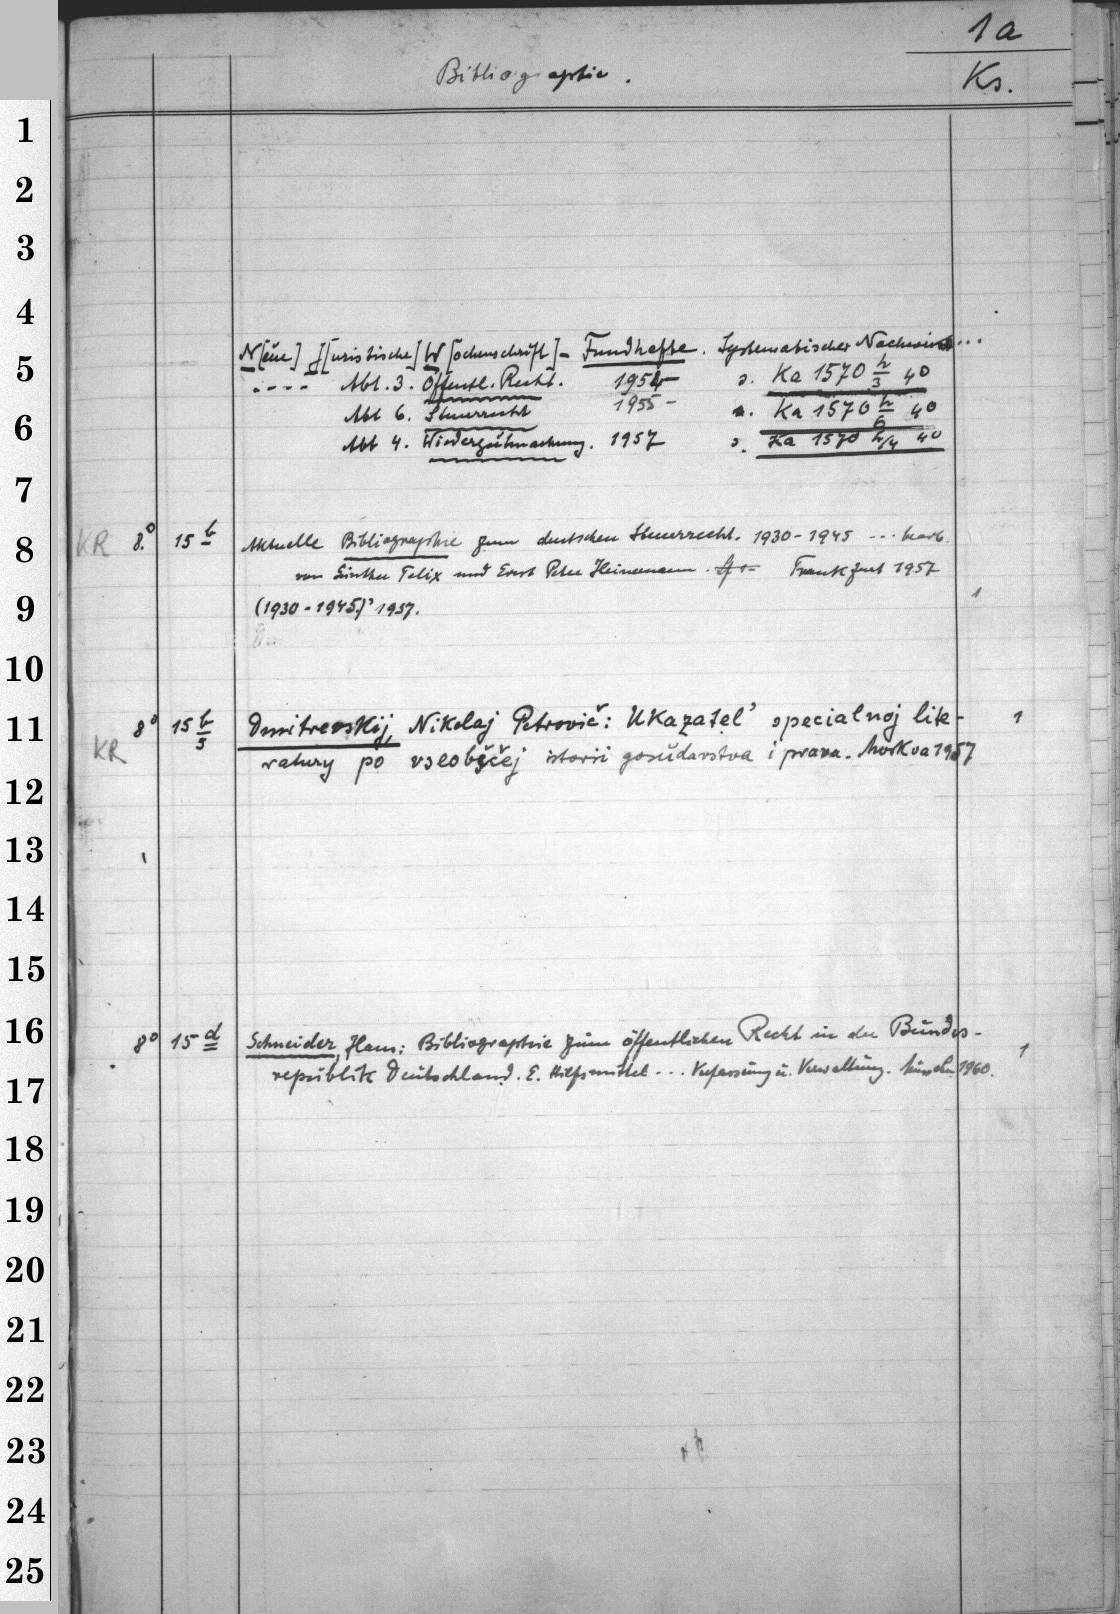 1a
Bibliographie. Ks.
1
2
3
4
N[eue] J[uristische] W[ochenschrift]- Fundhefte. Systematischer Nachweis...
5 .... Abt. 3. Öffentl. Recht. 1954- s. Ka 1570 h/3 4o
6 Abt 6. Steuerrecht 1955- s. Ka 1570 h/6 4o
Abt 4. Wiedergutmachung. 1957 s. Ka 1570 h/4 4o
7
8 KR 8.o 15 b Aktuelle Bibliographie zum deutschen Steuerrecht. 1930-1945 ... bearb.
von Günther Felix und Ernst Peter Heinemann. Frankfurt 1957
9 (1930-1945)' 1957. 1
10
11 KR 8o 15 b/5 Dmitrevskij, Nikolaj Petrovič: Ukazatel' specialnoj lite- 1
ratury po vseobščej istorii gosudarstva i prava. Moskva 1957
12
13
14
15
16 8o 15 d Schneider, Hans: Bibliographie zum öffentlichen Recht in der Bundes- 1
17 republik Deutschland. E. Hilfsmittel ... Verfassung u. Verwaltung. München 1960.
18
19
20
21
22
23
24
25